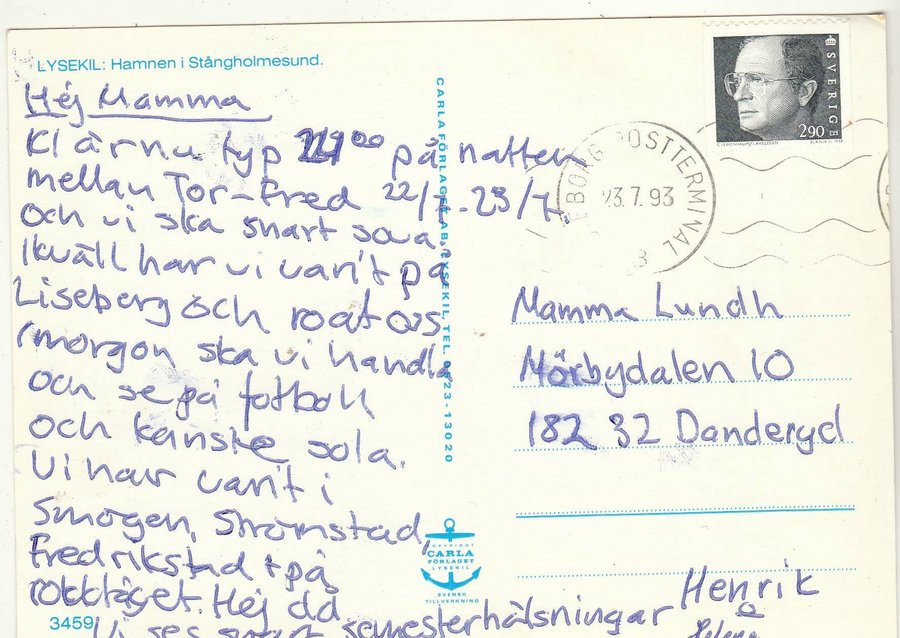 LYSEKIL: Hamnen i Stångholmesund.
Héj Mamma
Kl ärnu typ 00 på natten
mellan Tor-Fred 22/7-23/7
och vi ska snart sova.
Ikväll har vi varit på
Liseberg och roat oss
Imorgon ska vi handla
och se på fotboll
och kanske sola.
Vi har varit i
Smögen, Strömstad,
Fredrikstad + på
rokktåget. Héj då
Vi ses snart semesterhälsningar Henrik
&
Helena
3459
CARLA FÖRLAGET AB, LYSEKIL, TEL. 0523-13020
COPYRIGHT
CARLA
FÖRLAGET
LYSEKIL
SVENSK
TILLVERKNING
SVERIGE
290
EBORG POSTTERMINAL
23.7.93
Mamma Lundh
Mörbydalen 10
182 32 Danderyd